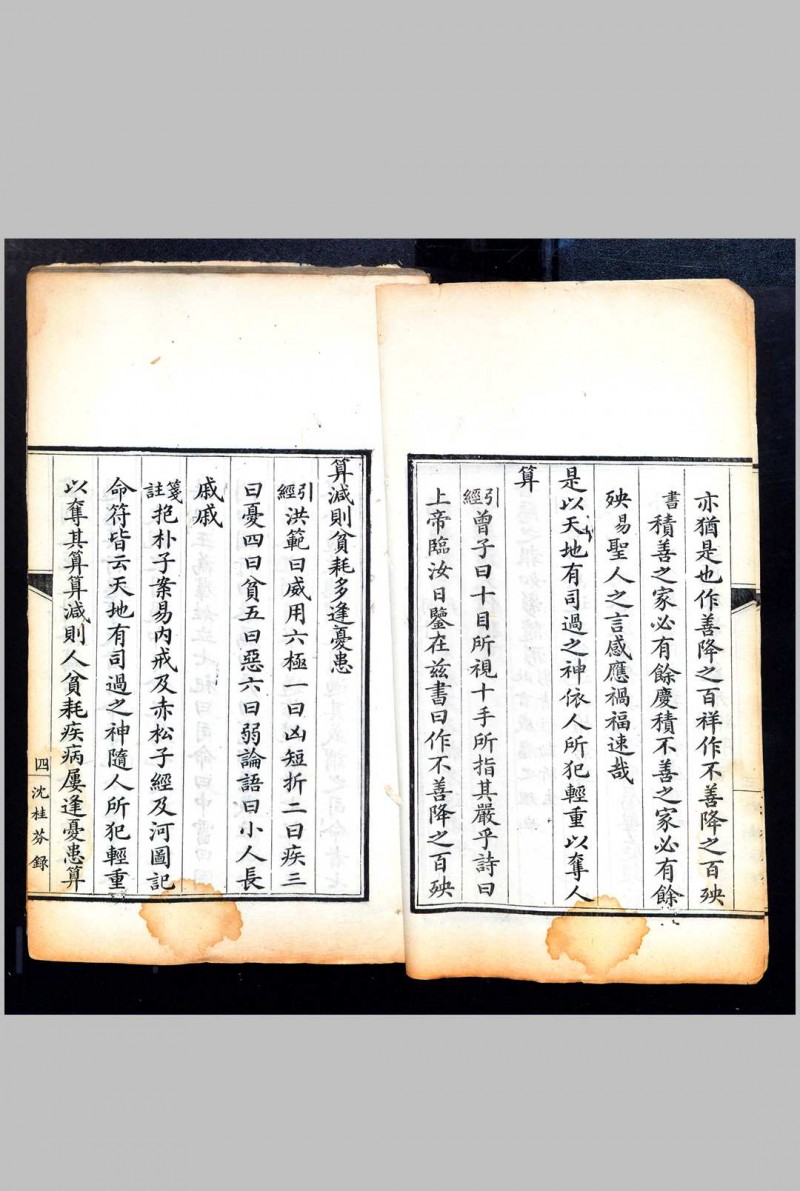 亦猶是也作善降之百祥作不善降之百殃
書積善之家必有餘慶積不善之家必有餘
殃易聖人之言感應禍福速哉
是以天地有司過之神依人所犯輕重以奪人
算
引經曾子曰十目所視十手所指其嚴乎詩曰
上帝臨汝日鑒在茲書曰作不善降之百殃
算減則貧耗多逢憂患
引經洪範曰威用六極一曰凶短折二曰疾三
曰憂四曰貧五曰惡六曰弱論語曰小人長
戚戚
箋註抱朴子案易內戒及赤松子經及河圖記
命符皆云天地有司過之神隨人所犯輕重
以奪其算算減則人貧耗疾病屢逢憂患算
四 沈桂芬錄